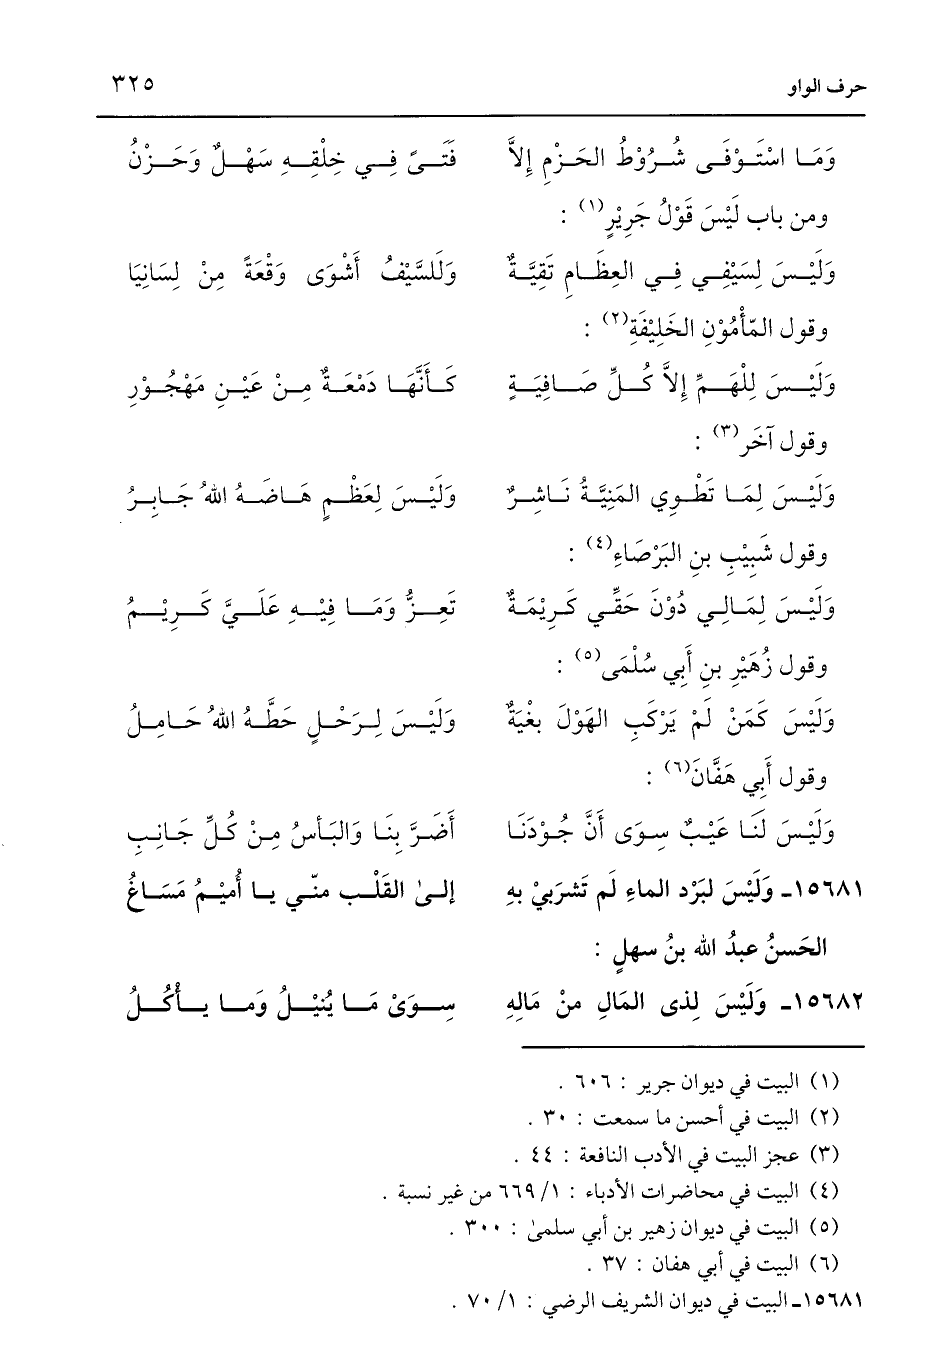 حرف الواو ٣٢٥
وَمَا اسْتَوْفَى شُرُوْطُ الحَزْمِ إِلاَّ فَتَىً فِي خِلْقِهِ سَهْلٌ وَحَزْنُ
ومن باب لَيْسَ قَوْلُ جَرِيْرٍ(١) :
وَلَيْسَ لِسَيْفِي فِي العِظَامِ تَقِيَّةٌ وَلَلسَّيْفُ أَشْوَى وَقْعَةً مِنْ لِسَانِيَا
وقول المّأمُوْنِ الخَلِيْفَةِ(٢) :
وَلَيْسَ لِلْهَمِّ إِلاَّ كُلِّ صَافِيَةٍ كَأَنَّهَا دَمْعَةٌ مِنْ عَيْنِ مَهْجُوْرِ
وقول آخَر(٣) :
وَلَيْسَ لِمَا تَطْوِي المَنِيَّةُ نَاشِرٌ وَلَيْسَ لِعَظْمٍ هَاضَهُ اللهُ جَابِرُ
وقول شَبِيْبِ بنِ البَرْصَاءِ(٤) :
وَلَيْسَ لِمَالِي دُوْنَ حَقِّي كَرِيْمَةٌ تَعِزُّ وَمَا فِيْهِ عَلَيَّ كَرِيْمُ
وقول زُهَيْرِ بنِ أَبِي سُلْمَى(٥) :
وَلَيْسَ كَمَنْ لَمْ يَرْكَبِ الهَوْلَ بغْيَةٌ وَلَيْسَ لِرَحْلٍ حَطَّهُ اللهُ حَامِلُ
وقول أَبِي هَفَّانَ(٦) :
وَلَيْسَ لَنَا عَيْبٌ سِوَى أَنَّ جُوْدَنَا أَضَرَّ بِنَا وَالبَأسُ مِنْ كُلِّ جَانِبِ
١٥٦٨١ـ وَلَيْسَ لبَرْد الماءِ لَم تَشرَبيْ بهِ إلىٰ القَلْبِ منّي يا أُميْمُ مَسَاغُ
الحَسنُ عبدُ الله بنُ سهلٍ :
١٥٦٨٢ـ وَلَيْسَ لِذى المَالِ منْ مَالِهِ سِوَىْ مَا يُنيْلُ وَما يأكُلُ
(١) البيت في ديوان جرير : ٦٠٦ .
(٢) البيت في أحسن ما سمعت : ٣٠ .
(٣) عجز البيت في الأدب النافعة : ٤٤ .
(٤) البيت في محاضرات الأدباء : ١/ ٦٦٩ من غير نسبة .
(٥) البيت في ديوان زهير بن أبي سلمىٰ : ٣٠٠ .
(٦) البيت في أبي هفان : ٣٧ .
١٥٦٨١ـ البيت في ديوان الشريف الرضي : ١/ ٧٠ .